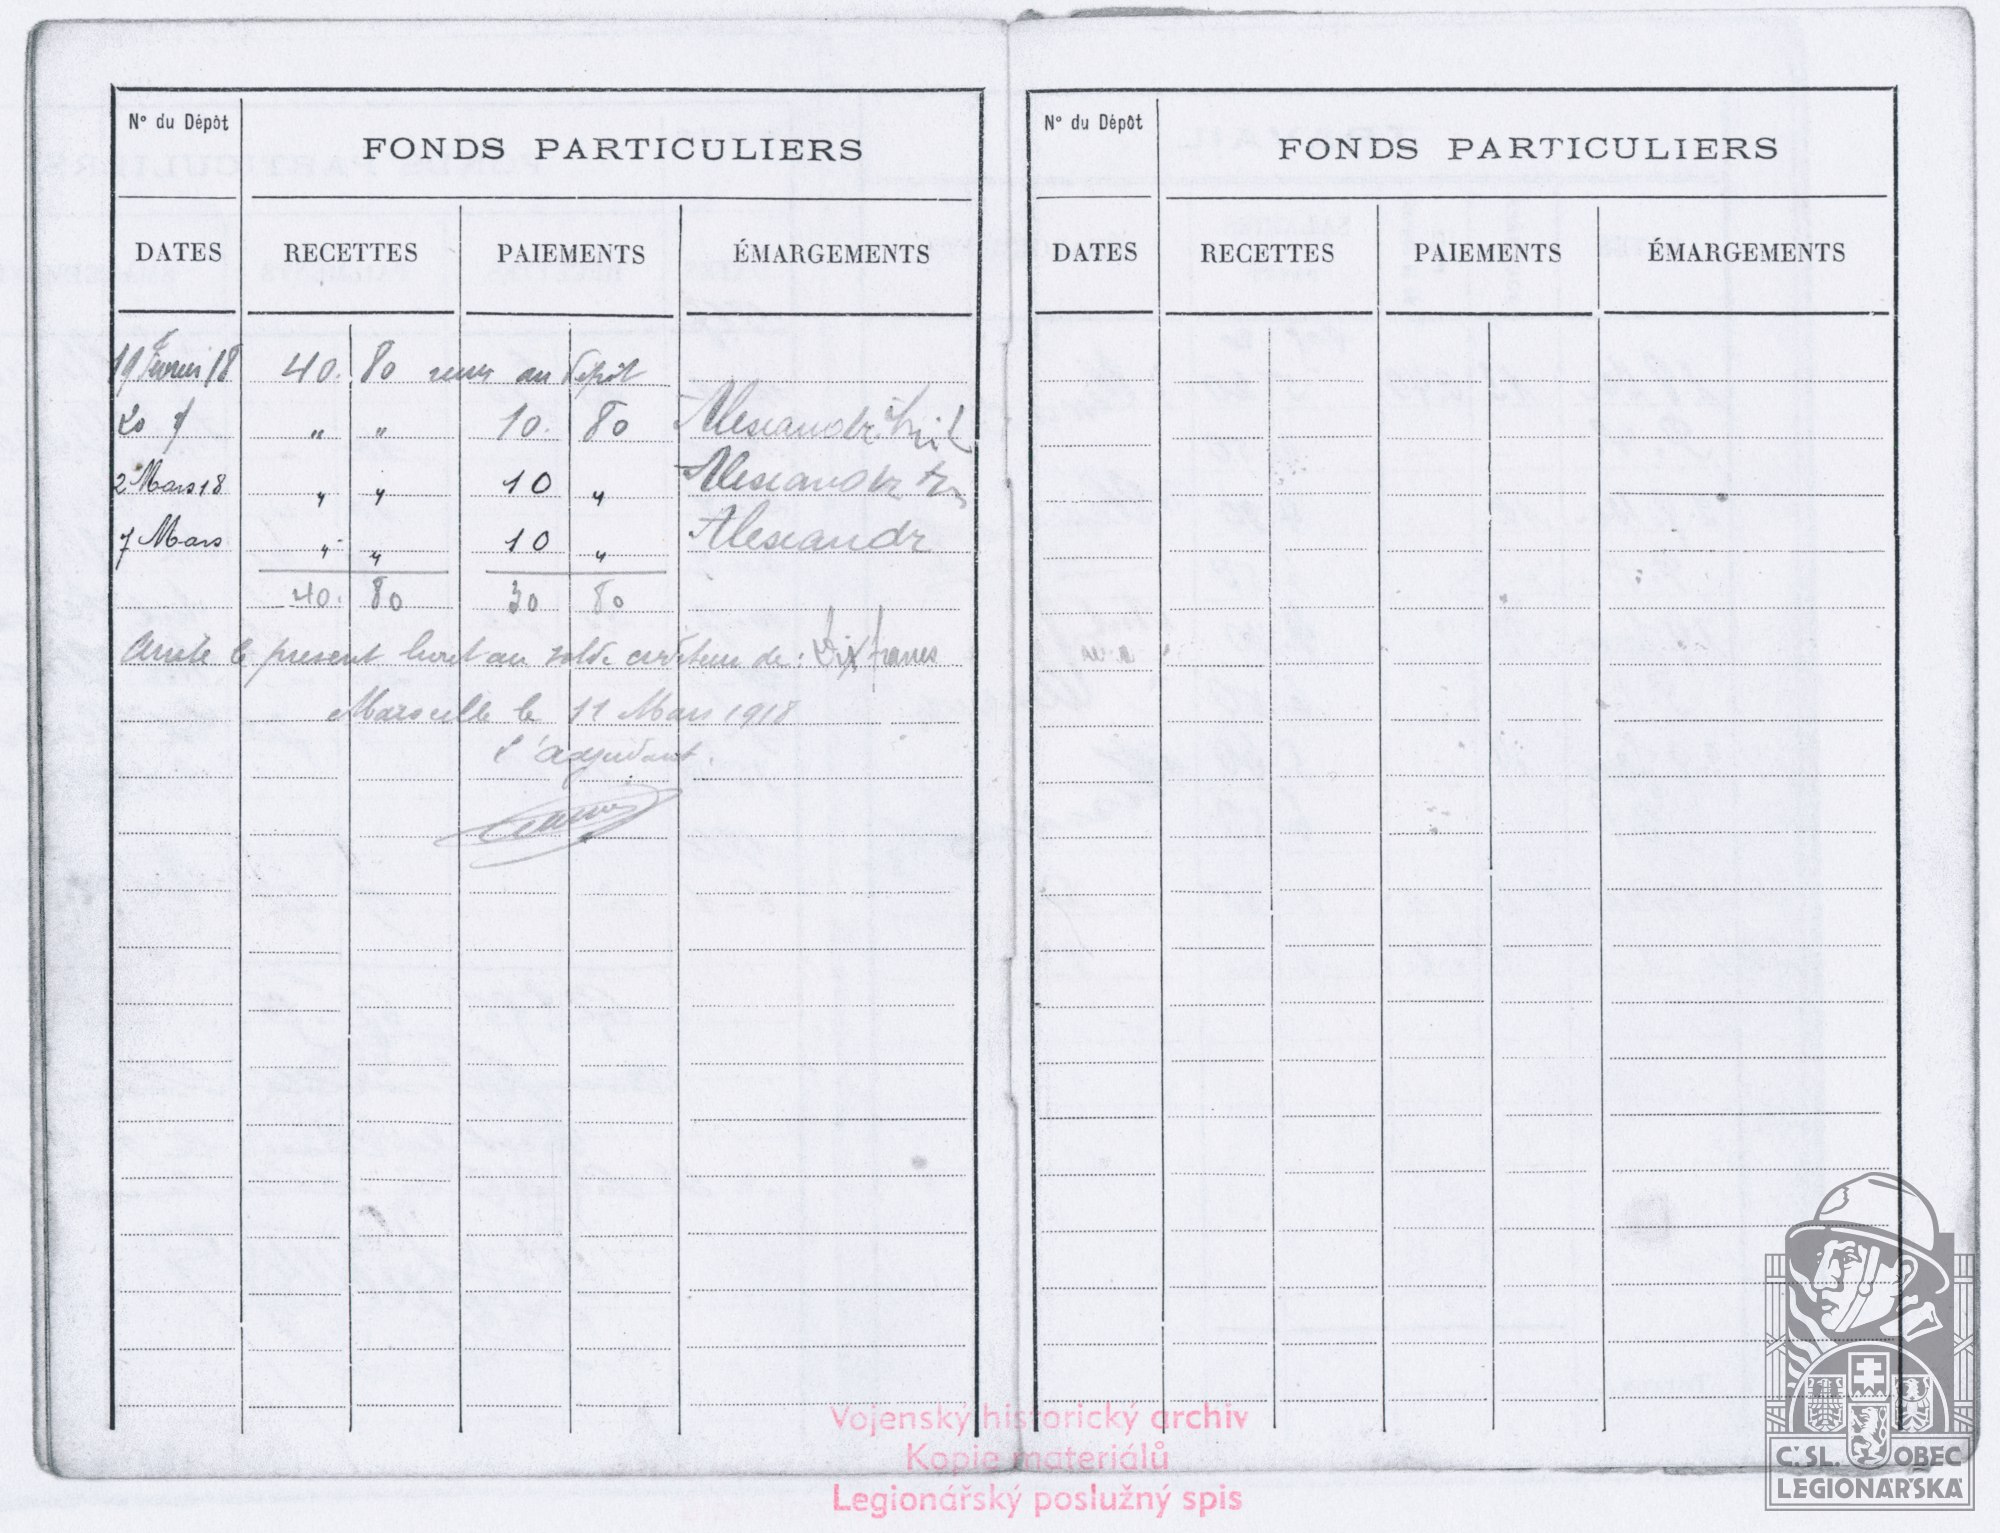 N° du Dépôt
FONDS PARTICULIERS
DATES RECETTES PAIEMENTS ÉMARGEMENTS
19 février 18 40. 80 au dépôt
20 " " 10. 80 Alexandr
2 Mars 18 " " 10 " Alexandr
7 Mars " " 10 " Alexandr
40. 80 30 80
Arrêté le présent livret au solde créditeur de : Dix francs
Marseille le 11 Mars 1918
L'adjudant.
N° du Dépôt
FONDS PARTICULIERS
DATES RECETTES PAIEMENTS ÉMARGEMENTS
Vojenský historický archiv
Kopie materiálů
Legionářský poslužný spis
Č.SL. OBEC
LEGIONÁŘSKÁ